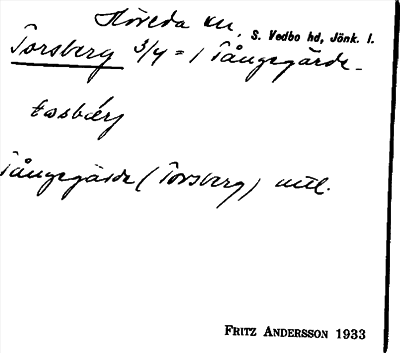 Höreda sn, S. Vedbo hd, Jönk. l.
Torsberg 3/4 = 1 Tångegärde
tosbärj
Tångegärde (Torsberg) uttl.
FRITZ ANDERSSON 1933